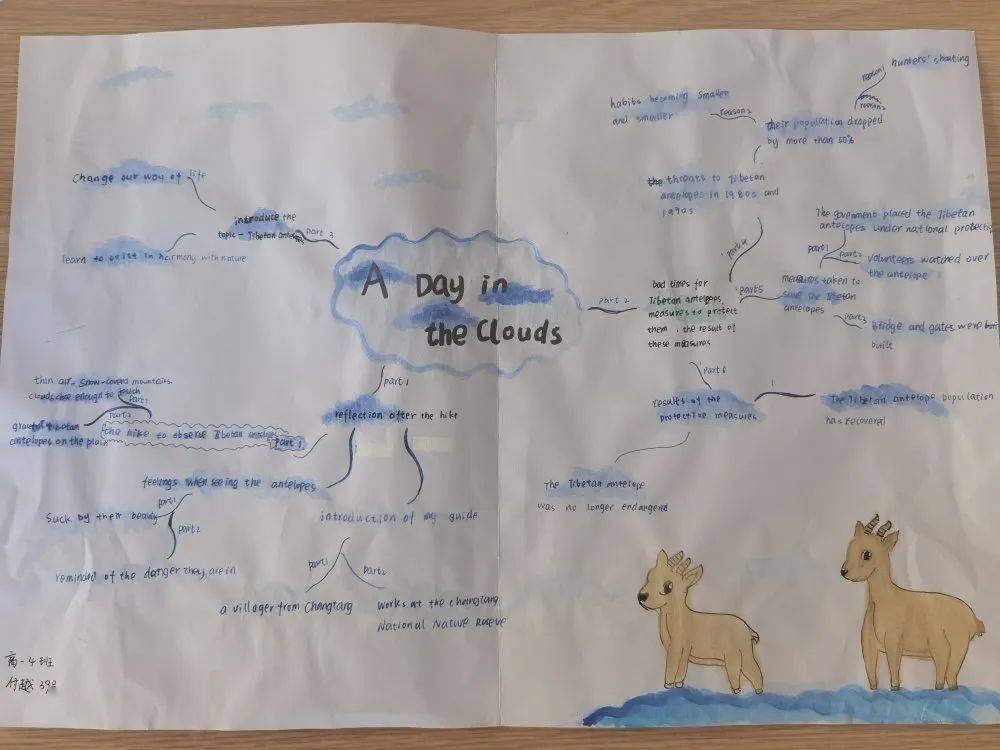 A Day in
the Clouds
part 1
reflection after the hike
part 1
the hike to observe Tibetan antelopes
part 1
thin air- snow-covered mountains.
clouds close enough to touch
part 2
graceful Tibetan
antelopes on the plain
feelings when seeing the antelopes
part 1
Suck by their beauty
part 2
reminded of the danger they are in
introduction of my guide
part 1
a villager from Changtang
part 2
works at the Changtang
National Nature Reserve
part 2
bad times for
Tibetan antelopes,
measures to protect
them, the result of
these measures
part 4
the threats to Tibetan
antelopes in 1980s and
1990s
their population dropped
by more than 50%
reason 1
hunters' shooting
reason 2
reason 2
habits becoming smaller
and smaller
part 5
measures taken to
save the Tibetan
antelopes
part 1
The government placed the Tibetan
antelopes under national protectio
part 2
volunteers watched over
the antelope
part 3
Bridge and gates were
built
part 6
results of the
protective measures
1
The Tibetan antelope population
has recovered
The Tibetan antelope
was no longer endangered
part 3
introduce the
topic - Tibetan antelopes
Change our way of life
learn to exist in harmony with nature
高一4班
付越 398